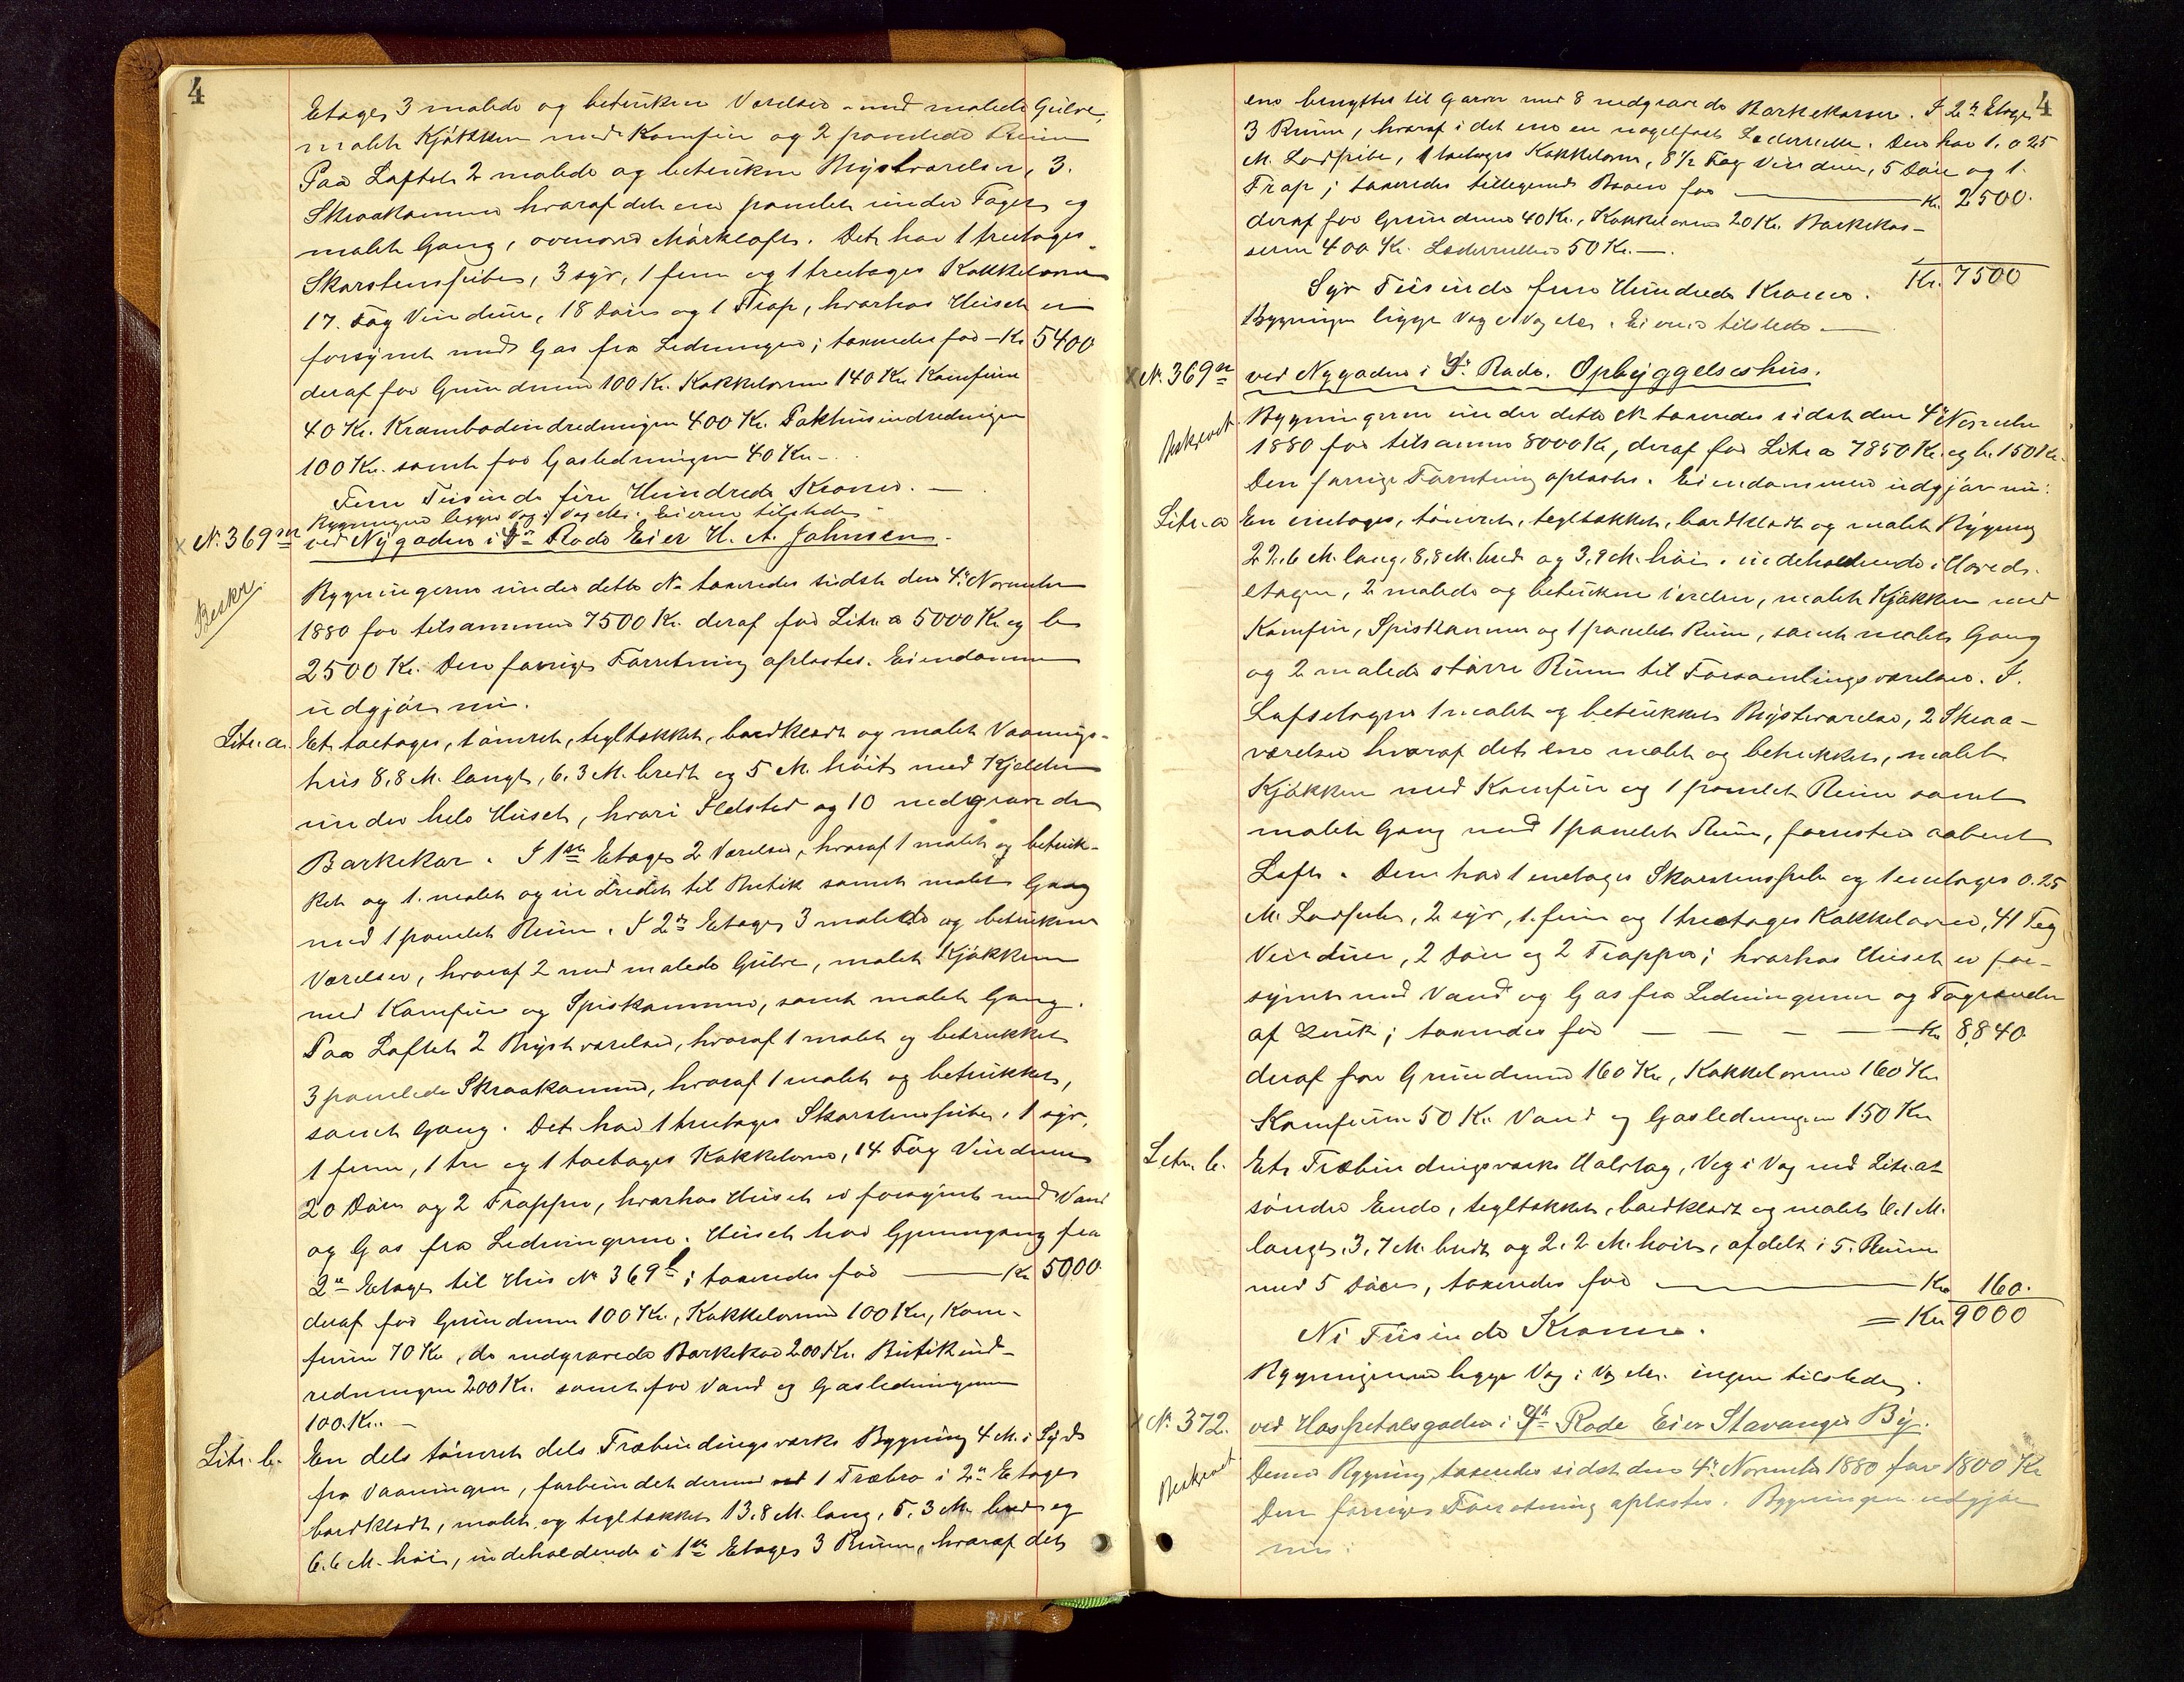 4
Etage 3 malede og betrukne Værelser med malede Gulve,
malet Kjøkken med Komfur og 2 panelede Rum
Paa Loftet 2 malede og betrukne Kvistværelser, 3.
Skraakamme hvoraf det ene panelet under Taget og
malet Gang, ovenover Mørkloft. Det har 1 treetages
Skorstenspibe, 3 syv, 1 fem og 1 treetages Kakkelovne
17. Fag Vinduer, 18 Døre og 1 Trap, hvorhos Huset er
forsynet med Gas fra Ledningen; taxeredes for — Kr 5400
deraf for Grundmur 100 Kr. Kakkelovne 140 Kr. Komfur
40 Kr. Krambodindredningen 400 Kr. Pakhusindredningen
100 Kr. samt for Gasledningen 40 Kr. -
Fem Tusinde fire Hundrede Kroner. —
Bygningen ligger Væg i Væg etc. Eieren tilstede -
x N. 369 m ved Nygaden i 4de Rode Eier H. A. Johnsen.
Beskr.
Bygningerne under dette No taxeredes sidst den 4de November
1880 for tilsammen 7500 Kr. deraf for Litr. a 5000 Kr. og b
2500 Kr. Den forrige Forretning oplæstes. Eiendommen
udgjør nu.
Litr. a. Et toetages, tømret, tegltækket, bordklædt og malet Vaanings-
hus 8,8 M. langt, 6.3 M. bredt og 5 M. høit med Kjelder
under hele Huset, hvori Ildsted og 10 nedgravede
Barkekar. I 1ste Etage 2 Værelser, hvoraf 1 malet og betruk-
ket og 1. malet og indredet til Butik samt malet Gang
med 1 panelet Rum. I 2den Etage 3 malede og betrukne
Værelser, hvoraf 2 med malede Gulve, malet Kjøkken
med Komfur og Spiskammer, samt malet Gang.
Paa Loftet 2 Kvistværelser, hvoraf 1 malet og betrukket
3 panelede Skraakamme, hvoraf 1 malet og betrukket,
samt Gang. Det har 1 treetages Skorstenspibe, 1 syv,
1 fem, 1 tre og 1 toetages Kakkelovne, 14 Fag Vinduer
20 Døre og 2 Trapper, hvorhos Huset er forsynet med Vand
og Gas fra Ledningerne. Huset har Gjennemgang fra
2den Etage til Hus No 369 l; taxeredes for — Kr 5000
deraf for Grundmur 100 Kr., Kakkelovne 100 Kr., Kom-
furer 70 Kr., de nedgravede Barkekar 200 Kr. Butikind-
redningen 200 Kr. samt for Vand og Gasledningerne
100. Kr. -
Litr. b. En dels tømret dels Træbindingsværks Bygning 4 M. i Syd
fra Vaaningen, forbundet dermed ved 1 Træbro i 2den Etage
bordklædt, malet og tegltækket 13.8 M. lang, 5.3 M. bred og
6.6 M. høi, indeholdende i 1ste Etage 3 Rum, hvoraf det
4
ene benyttes til Garveri med 8 nedgravede Barkekasser. I 2den Etage
3 Rum, hvoraf i det ene en nagelfast Læderrulle. Den har 1. 0.25
M. Lodpibe, 1 toetages Kakkelovn, 8 1/2 Fag Vinduer, 5 Døre og 1.
Trap; taxeredes tilligemed Broen for — Kr. 2500.
deraf for Grundmur 40 Kr., Kakkelovne 20 Kr. Barkekas-
serne 400 Kr. Læderrullen 50 Kr. —.
Kr. 7500
Syv Tusinde fem Hundrede Kroner.
Bygningen ligger Væg i Væg etc. Eieren tilstede. —
x N. 369 n ved Nygaden i 4de Rode. Opbyggelseshus.
Beskrevet
Bygningerne under dette No taxeredes sidst den 4de November
1880 for tilsammen 8000 Kr, deraf for Litr. a 7850 Kr. og b. 150 Kr.
Den forrige Forretning oplæstes. Eiendommen udgjør nu:
Litr. a En enetages, tømret, tegltækket, bordklædt og malet Bygning
22.6 M. lang, 8,8 M. bred og 3,9 M. høi. indeholdende i Hoved-
etagen, 2 malede og betrukne Værelser, malet Kjøkken med
Komfur, Spiskammer og 1 panelet Rum, samt malet Gang
og 2 malede større Rum til Forsamlingsværelser. I.
Loftsetagen 1 malet og betrukket Kvistværelse, 2 Skraa-
værelser hvoraf det ene malet og betrukket, malet
Kjøkken med Komfur og 1 panelet Rum samt
malet Gang med 1 panelet Rum, forresten aabent
Loft. Den har 1 enetages Skorstenspibe og 1 enetages 0.25
M. Lodpibe, 2 syv, 1. fem og 1 treetages Kakkelovne, 41 Fag
Vinduer, 2 Døre og 2 Trapper; hvorhos Huset er for-
synet med Vand og Gas fra Ledningerne og Tagrender
af Zink; taxeredes for — — — — Kr 8,840.
deraf for Grundmur 160 Kr., Kakkelovne 160 Kr
Komfurer 50 Kr. Vand og Gasledningen 150 Kr
Litr. b. Et Træbindingsværks Halvtag, Væg i Væg med Litr. a's
søndre Ende, tegltækket, bordklædt og malet 6.1 M.
langt, 3,7 M. bredt og 2.2 M. høit, afdelt i 5. Rum
med 5 Døre, taxeredes for — Kr 160.
= Kr 9000
Ni Tusinde Kroner.
Bygningerne ligger Væg i Væg etc. ingen tilstede.
x N. 372. ved Hospitalsgaden i 4de Rode Eier Stavanger By.
Beskrevet
Denne Bygning taxeredes sidst den 4de November 1880 for 1800 Kr
Den forrige Forretning oplæstes. Bygningen udgjør
nu: